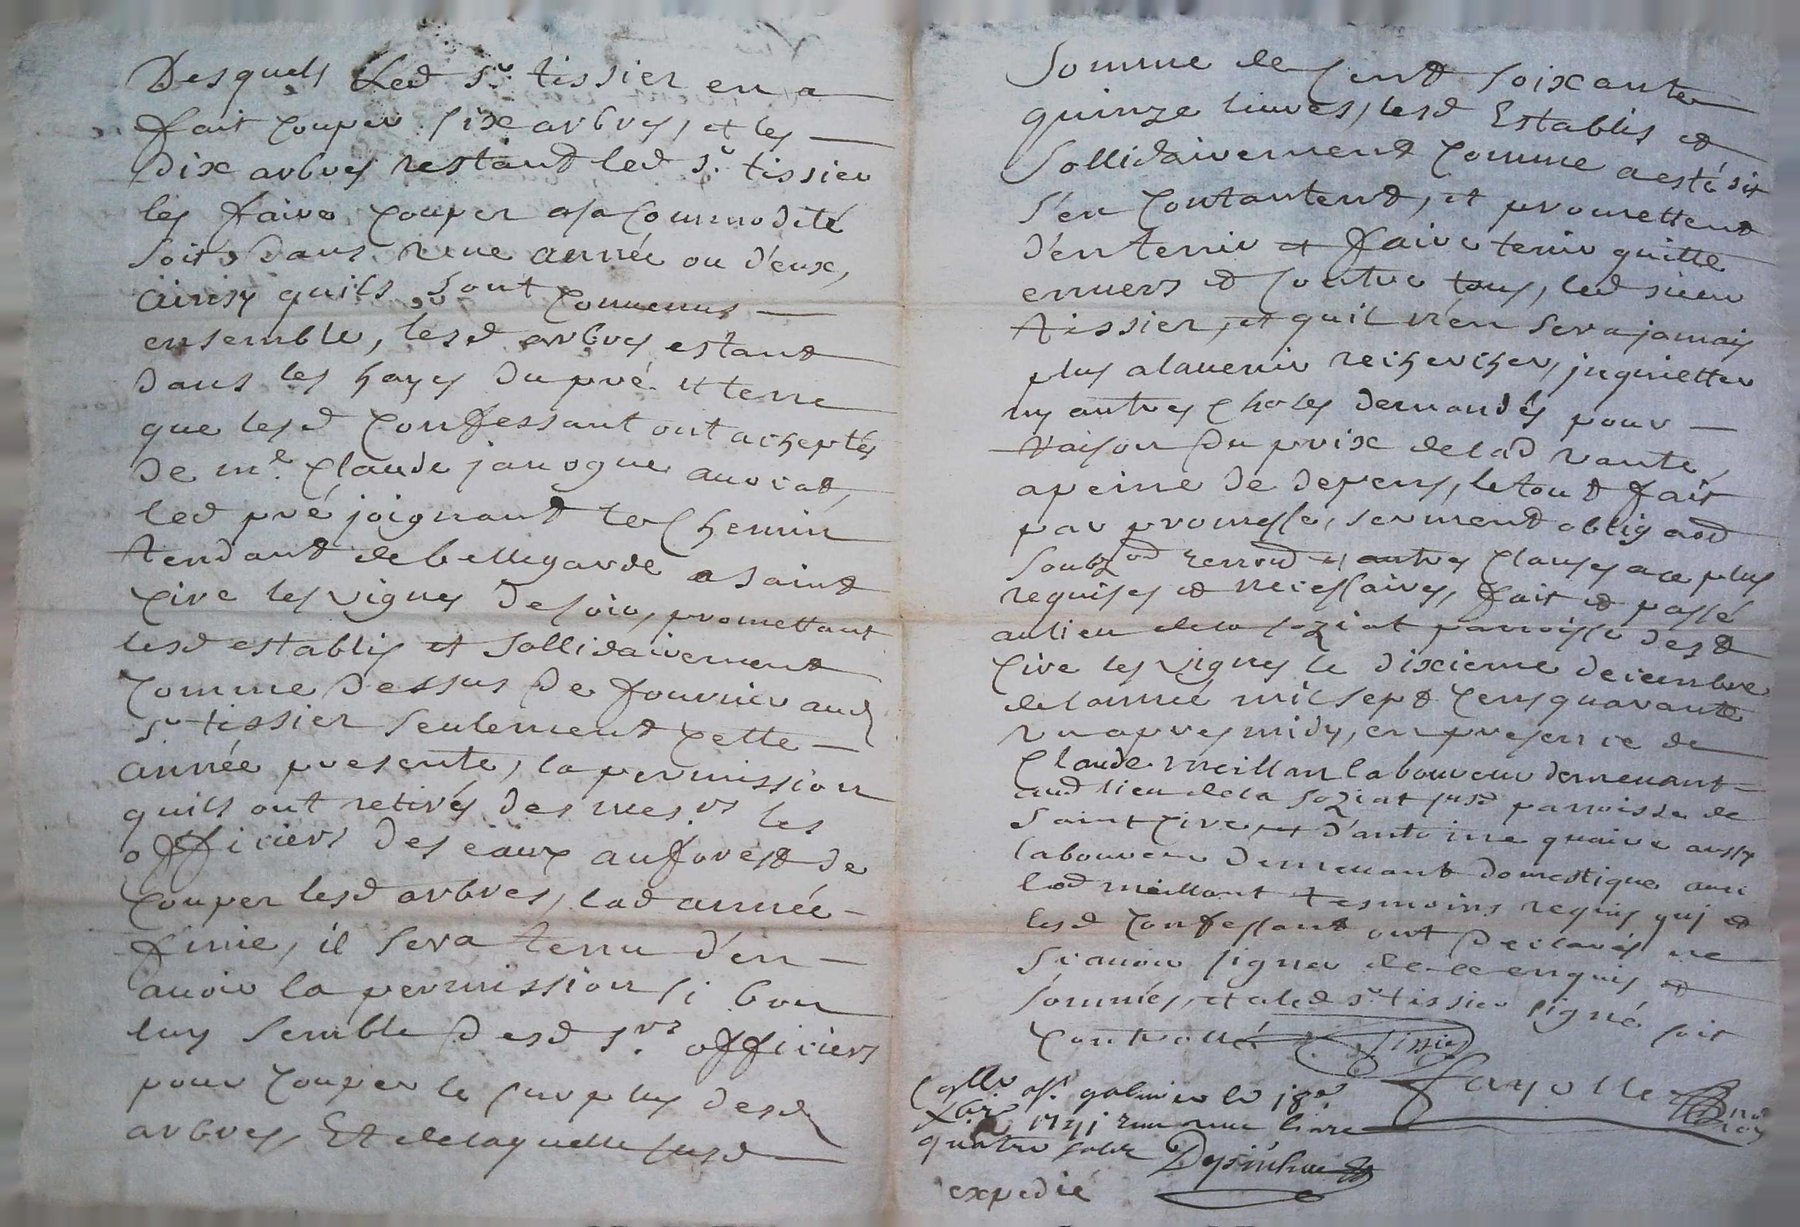 Desquels Led sr. tissier en a
fait couper six arbres, et les
dix arbres restant led sr. tissier
les faire couper a sa commodité
soit dans une année ou d'eux,
ainsy quils sont convenus
ensemble, lesd arbres estant
dans les hayes du pré et terre
que lesd confessant ont acheptés
de me. claude janogue
led pré joignant le chemin
tendant de bellegarde a saint
cire les vignes de soir, promettant
lesd establis et sollidairement
comme dessus de fournir aud
sr tissier seulement cette
année presente, la permission
quils ont retirés des mes.rs les
officiers des eaux au forest de
couper lesd arbres, lad année
finie, il sera tenu d'en
avoir la permission si bon
luy semble desd s.rs officiers
pour couper le surplus desd
arbres, Et de laquelle susd
somme de cent soixante
quinze livres, lesd Establis et
sollidairement comme a esté dit
s'en contantent, et promettent
d'en tenir et faire tenir quitte
envers et contre tous, led sieur
tissier, et quil n'en sera jamais
plus alavenir rechercher, inquietter
ny autres choses demandés pour
raison du prix de lad vante,
a peine de depens, le tout fait
par promesse, serment obligaôd
soubzôd renond et autres clauses a ce plus
requises et necessaires, fait et passé
au lieu de la soziat parroisse dest
cire les vignes le dixieme decembre
de lannée mil sept cens quarante
un apres midy, en presence de
Claude meillan laboureur demeurant
aud lieu de la soziat susd parroisse de
saint cire, et d'antoine quaire aussy
laboureur demeurant domestique avec
led meillant tesmoins requis qui et
lesd confessant ont declarés ne
scavoir signer de ce enquis et
sommés, et a led sr tissier signé soit
controllé Tissier
fayolle
a st. galmier le
xbre 1741 une livre
quatre sols
expedié